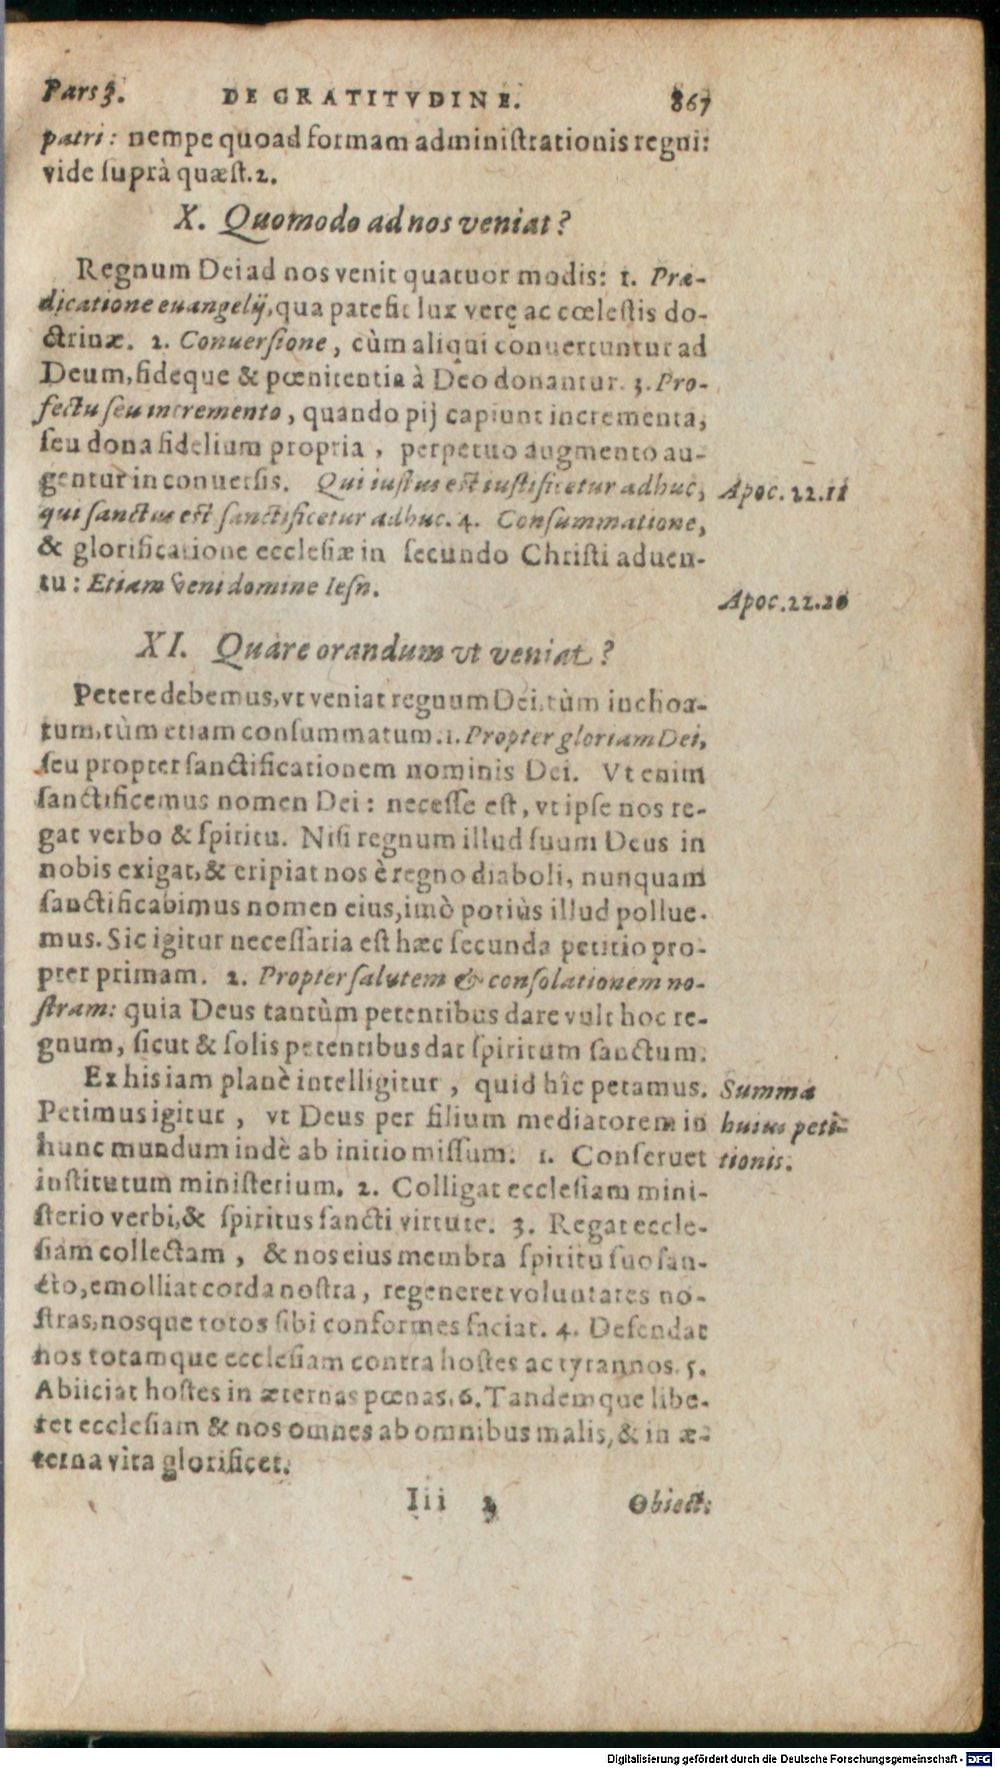 Pars 3. DE GRATITVDINE. 867
patri: nempe quoad formam administrationis regni:
vide suprà quæst. 2.
X. Quomodo ad nos veniat?
Regnum Dei ad nos venit quatuor modis: 1. Præ-
dicatione euangelij, qua patefit lux veræ ac cœlestis do-
ctrinæ. 2. Conuersione, cùm aliqui conuertuntur ad
Deum, fideque & pœnitentia à Deo donantur. 3. Pro-
fectu seu incremento, quando pij capiunt incrementa,
seu dona fidelium propria, perpetuo augmento au-
gentur in conuersis. Qui iustus est iustificetur adhuc, Apoc. 22.11
qui sanctus est sanctificetur adhuc. 4. Consummatione,
& glorificatione ecclesiæ in secundo Christi aduen-
tu: Etiam veni domine Iesu.
Apoc. 22.20
XI. Quare orandum vt veniat?
Petere debemus, vt veniat regnum Dei, tùm inchoa-
tum, tùm etiam consummatum. 1. Propter gloriam Dei,
seu propter sanctificationem nominis Dei. Vt enim
sanctificemus nomen Dei: necesse est, vt ipse nos re-
gat verbo & spiritu. Nisi regnum illud suum Deus in
nobis exigat, & eripiat nos è regno diaboli, nunquam
sanctificabimus nomen eius, imò potiùs illud pollue-
mus. Sic igitur necessaria est hæc secunda petitio pro-
pter primam. 2. Propter salutem & consolationem no-
stram: quia Deus tantùm petentibus dare vult hoc re-
gnum, sicut & solis petentibus dat spiritum sanctum.
Ex his iam planè intelligitur, quid hîc petamus. Summa
Petimus igitur, vt Deus per filium mediatorem in huius peti-
hunc mundum indè ab initio missum. 1. Conseruet tionis.
institutum ministerium. 2. Colligat ecclesiam mini-
sterio verbi, & spiritus sancti virtute. 3. Regat eccle-
siam collectam, & nos eius membra spiritu suo san-
cto, emolliat corda nostra, regeneret voluntates no-
stras, nosque totos sibi conformes faciat. 4. Defendat
nos totamque ecclesiam contra hostes ac tyrannos. 5.
Abiiciat hostes in æternas pœnas. 6. Tandemque libe-
ret ecclesiam & nos omnes ab omnibus malis, & in æ-
terna vita glorificet.
Iii 3 Obiect:
Digitalisierung gefördert durch die Deutsche Forschungsgemeinschaft - DFG